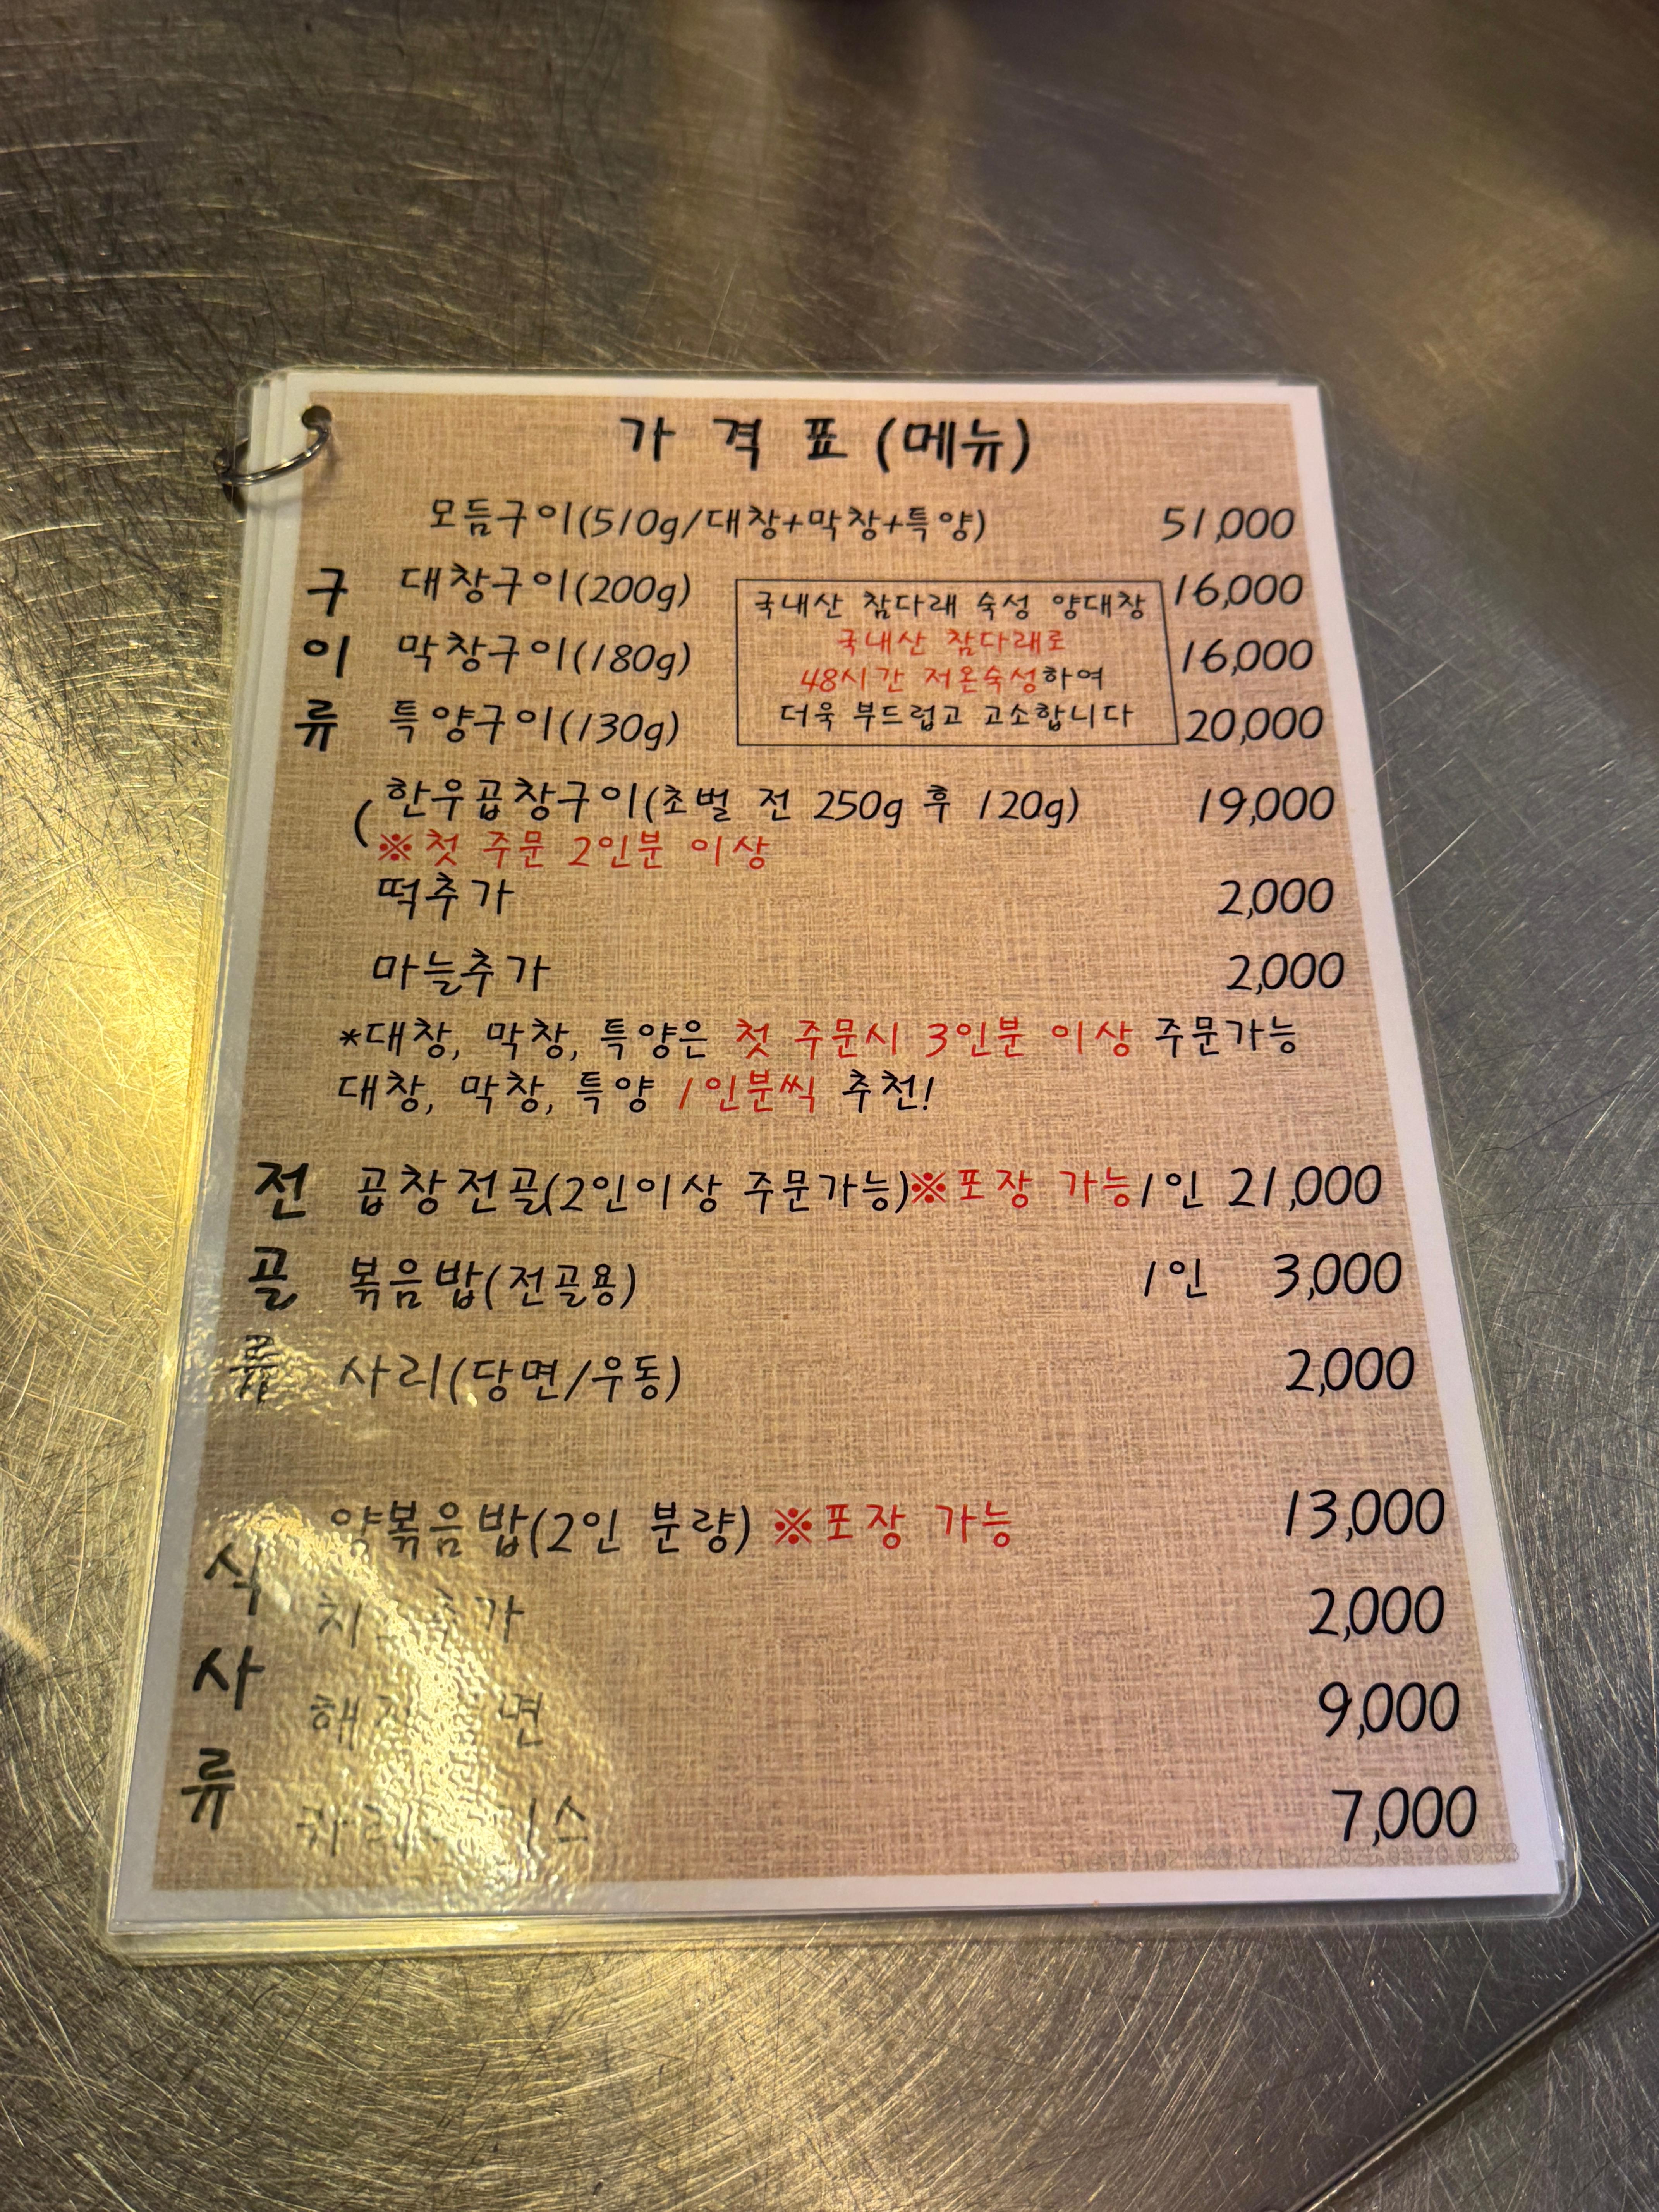 가 격 표 (메뉴)
모듬구이(510g/대창+막창+특양) 51,000
구이류
대창구이(200g) 16,000
막창구이(180g) 16,000
특양구이(130g) 20,000
국내산 참다래 숙성 양대창
국내산 참다래로
48시간 저온숙성하여
더욱 부드럽고 고소합니다
(한우곱창구이(초벌 전 250g 후 120g) 19,000
※첫 주문 2인분 이상
떡추가 2,000
마늘추가 2,000
*대창, 막창, 특양은 첫 주문시 3인분 이상 주문가능
대창, 막창, 특양 1인분씩 추천!
전골류
곱창전골(2인이상 주문가능)※포장 가능 1인 21,000
볶음밥(전골용) 1인 3,000
사리(당면/우동) 2,000
식사류
양볶음밥(2인 분량) ※포장 가능 13,000
2,000
9,000
7,000